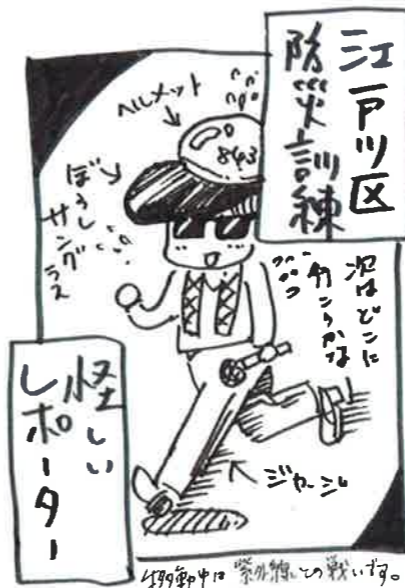 江戸川区
防災訓練
ヘルメット
843
ぼうし
サングラス
次はどこに
怪しい
レポーター
ジャージ
移動中は紫外線との戦いです。